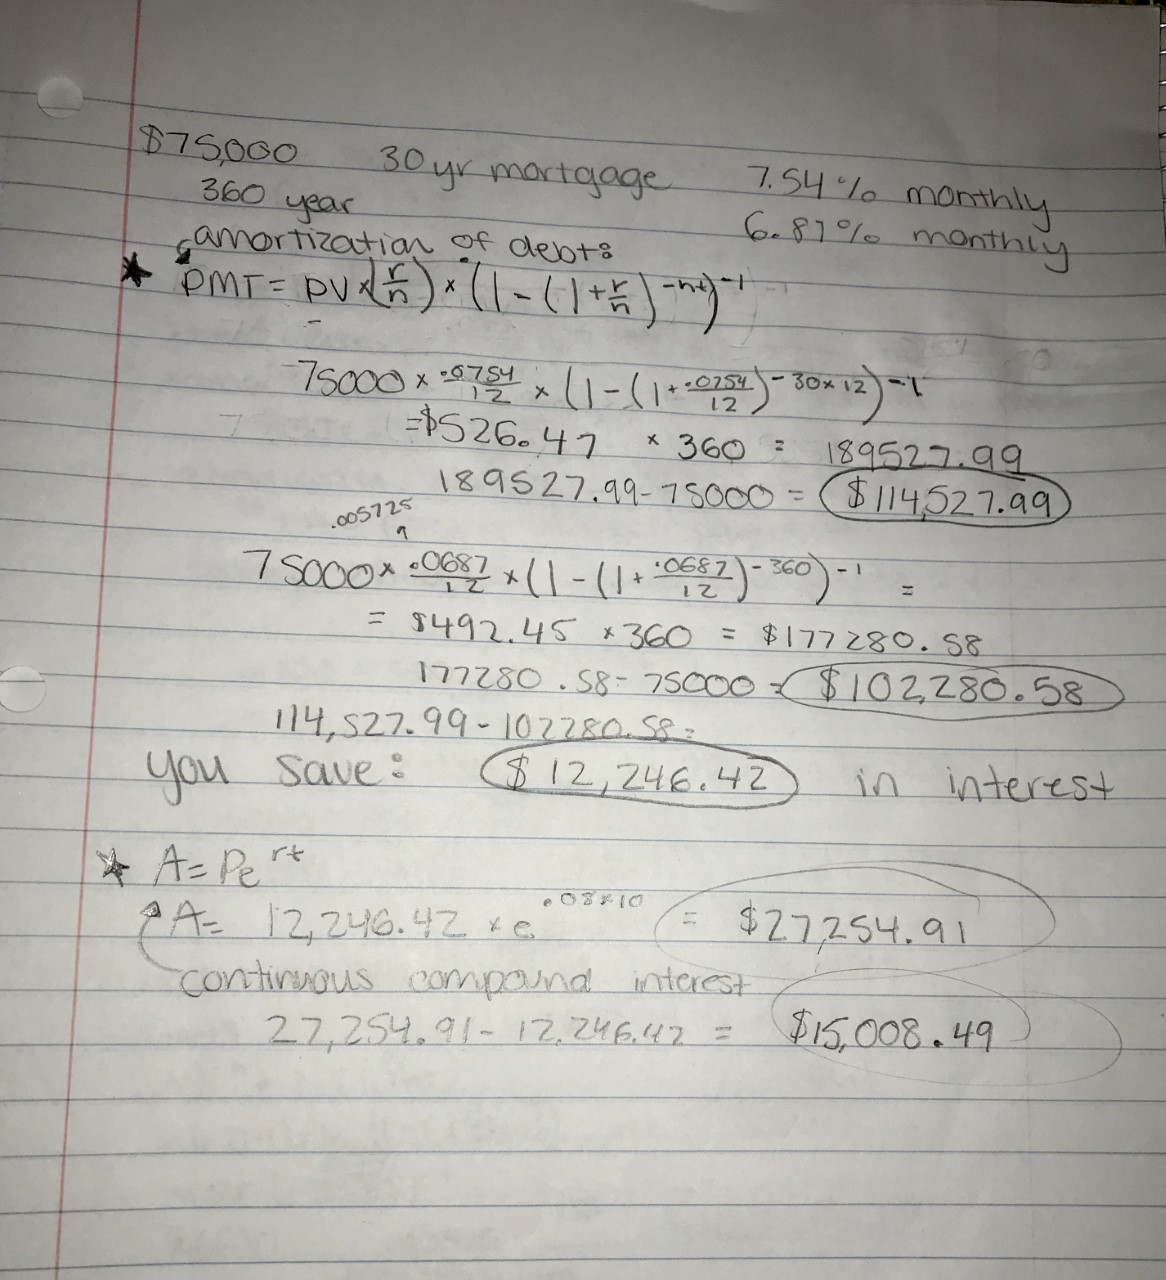 $75,000 30 yr mortgage 7.54% monthly
360 year 6.87% monthly
amortization of debt:
★ PMT = PV × (r/n) × (1 - (1 + r/n)^-nt)^-1
75000 × .0754/12 × (1 - (1 + .0754/12)^-30×12)^-1
= $526.47 × 360 = 189527.99
189527.99 - 75000 = $114,527.99
.005725
75000 × .0687/12 × (1 - (1 + .0687/12)^-360)^-1 =
= $492.45 × 360 = $177280.58
177280.58 - 75000 = $102,280.58
114,527.99 - 102280.58 =
you save: $12,246.42 in interest
★ A = Pe^rt
A = 12,246.42 × e^.08×10 = $27,254.91
continuous compound interest
27,254.91 - 12,246.42 = $15,008.49